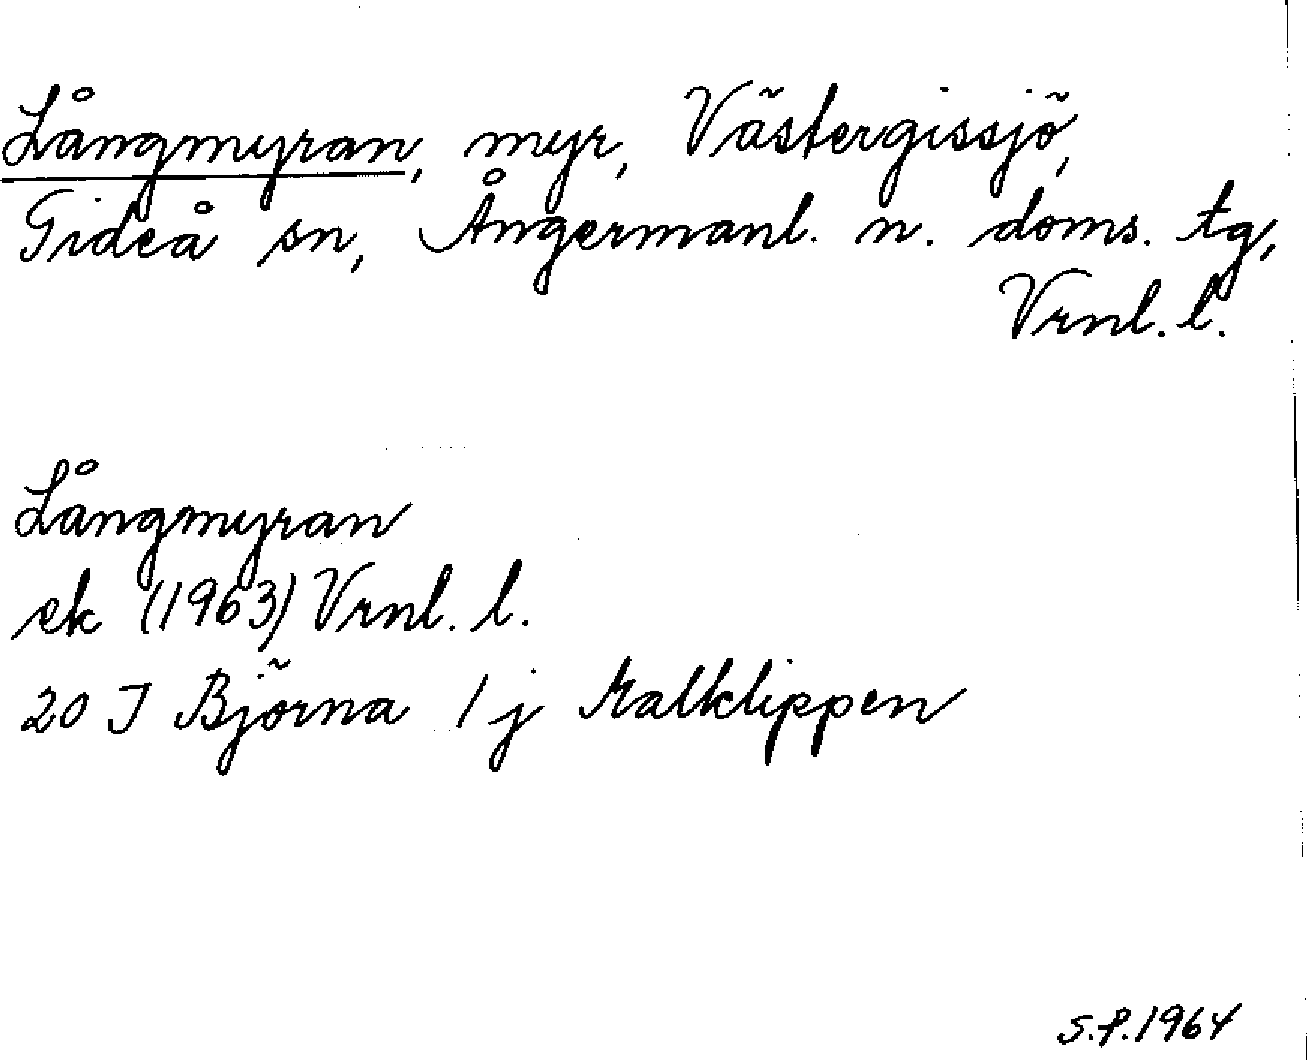 Långmyran, myr, Västergissjö,
Gideå sn, Ångermanl. n. doms. tg,
Vrnl. l.
Långmyran
ek (1963) Vrnl. l.
20 J Björna 1 j Kalklippen
S.P. 1964